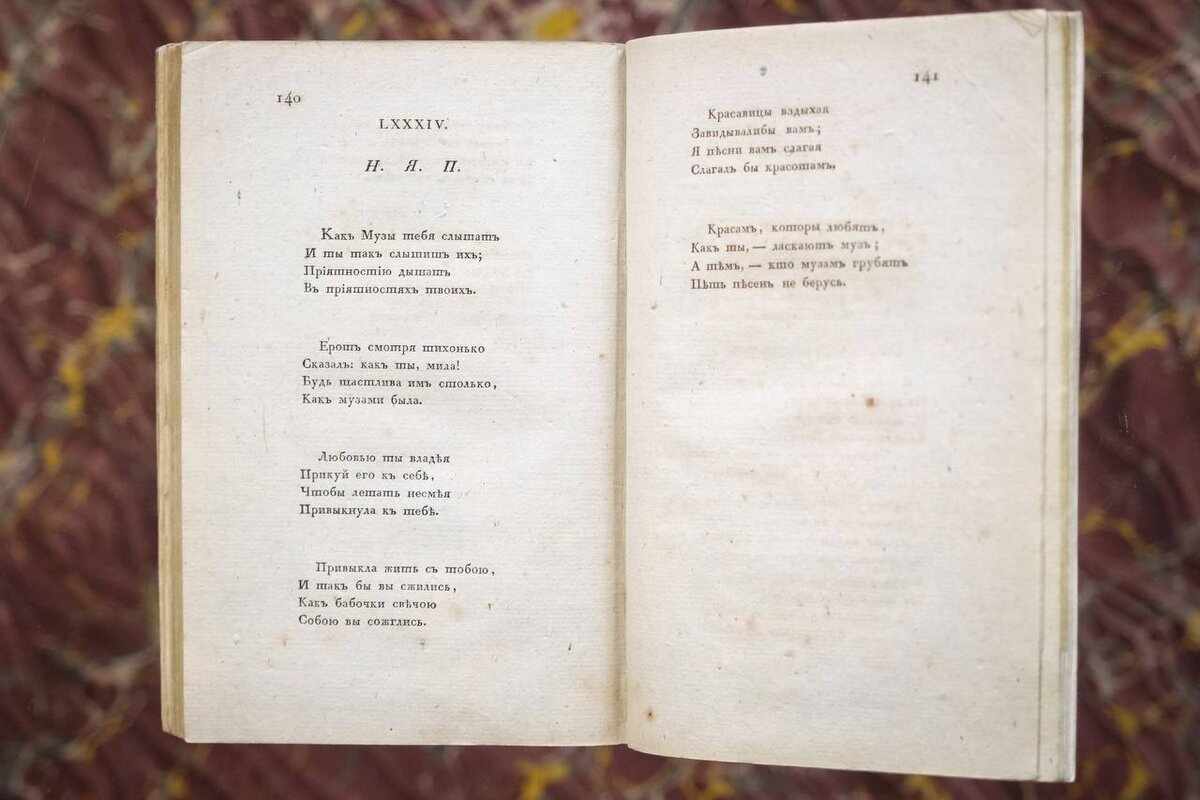 140
LXXXIV.
Н. Я. П.
Какъ Музы тебя слышатъ
И ты такъ слышишь ихъ;
Пріятностію дышатъ
Въ пріятностяхъ твоихъ.
Еротъ смотря тихонько
Сказалъ: какъ ты, мила!
Будь щастлива имъ столько,
Какъ музами была.
Любовью ты владѣя
Прикуй его къ себѣ,
Чтобы летать несмѣя
Привыкнула къ тебѣ.
Привыкла жить съ тобою,
И такъ бы вы сжились,
Какъ бабочки свѣчою
Собою вы сожглись.
141
Красавицы вздыхая
Завидывалибы вамъ;
Я пѣсни вамъ слагая
Слагалъ бы красотамъ.
Красамъ, которы любятъ,
Какъ ты, — ласкаютъ музъ;
А тѣмъ, — кто музамъ грубятъ
Пѣть пѣсенъ не берусь.